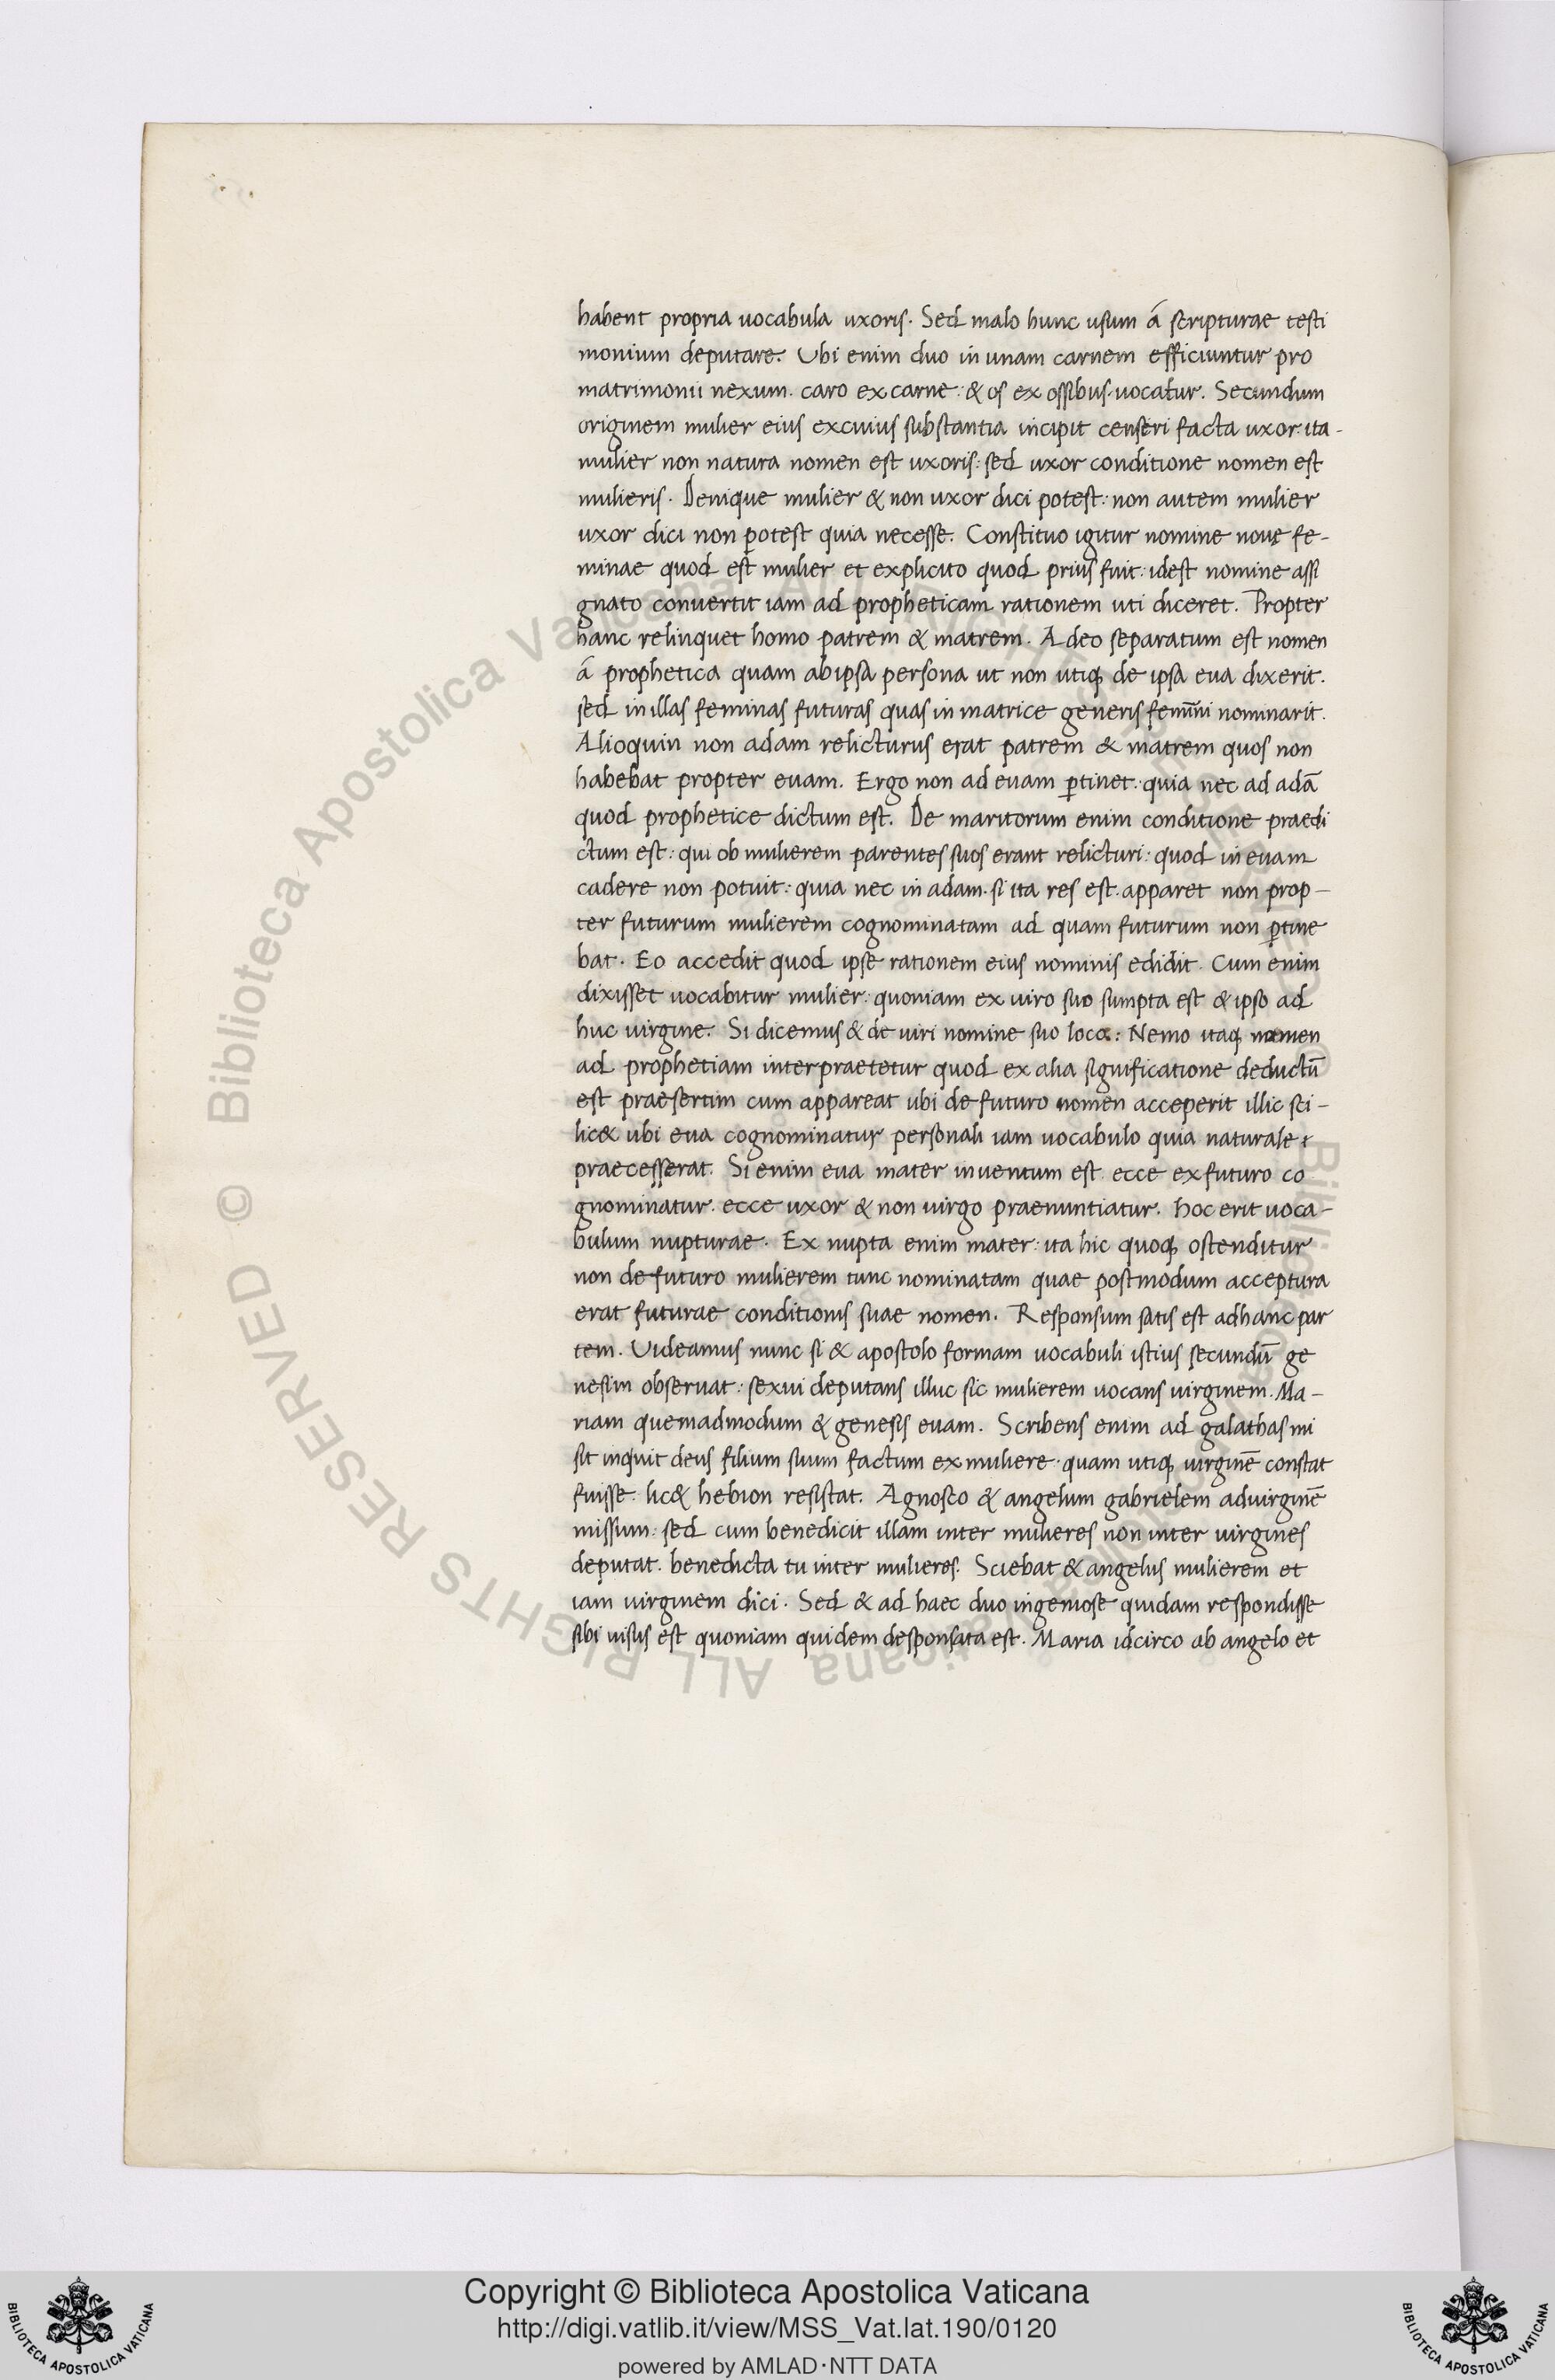 habent propria uocabula uxoris. Sed malo hunc usum á scripturae testi
monium deputare. Ubi enim duo in unam carnem efficiuntur pro
matrimonii nexum. caro ex carne: & os ex ossibus. uocatur. Secundum
originem mulier eius excuius substantia incipit censeri facta uxor: ita-
mulier non natura nomen est uxoris: sed uxor conditione nomen est
mulieris. Denique mulier & non uxor dici potest: non autem mulier
uxor dici non potest quia necesse. Constituo igitur nomine nouę fe-
minae quod est mulier et explicito quod prius fuit: idest nomine assi
gnato conuertit iam ad propheticam rationem uti diceret. Propter
hanc relinquet homo patrem & matrem. Adeo separatum est nomen
á prophetica quam abipsa persona ut non utiq; de ipsa eua dixerit.
sed in illas feminas futuras quas in matrice generis feminini nominarit.
Alioquin non adam relicturus erat patrem & matrem quos non
habebat propter euam. Ergo non ad euam ꝑtinet: quia nec ad adā
quod prophetice dictum est. De maritorum enim conditione praedi
ctum est: qui ob mulierem parentes suos erant relicturi: quod in euam
cadere non potuit: quia nec in adam. si ita res est. apparet non prop-
ter futurum mulierem cognominatam ad quam futurum non ꝑtine
bat. Eo accedit quod ipse rationem eius nominis edidit. Cum enim
dixisset uocabitur mulier: quoniam ex uiro suo sumpta est & ipso ad
huc uirgine. Si dicemus & de uiri nomine suo loco: Nemo itaq; nomen
ad prophetiam interpraetetur quod ex alia significatione deductū
est praesertim cum appareat ubi de futuro nomen acceperit illic sci-
lic& ubi eua cognominatur personali iam uocabulo quia naturale
praecesserat. Si enim eua mater inuentum est. ecce ex futuro co
gnominatur. ecce uxor & non uirgo praenuntiatur. hoc erit uoca-
bulum nupturae. Ex nupta enim mater: ita hic quoq; ostenditur
non de futuro mulierem tunc nominatam quae postmodum acceptura
erat futurae conditionis suae nomen. Responsum satis est adhanc par
tem. Uideamus nunc si & apostolo formam uocabuli istius secundū ge
nesim obseruat: sexui deputans illuc sic mulierem uocans uirginem. Ma-
riam quemadmodum & genesis euam. Scribens enim ad galathas mi
sit inquit deus filium suum factum ex muliere. quam utiq; uirginē constat
fuisse. lic& hebion resistat. Agnosco & angelum gabrielem aduirginē
missum: sed cum benedicit illam inter mulieres non inter uirgines
deputat. benedicta tu inter mulieres. Sciebat & angelus mulierem et
iam uirginem dici. Sed & ad haec duo ingeniose quidam respondisse
sibi uisus est quoniam quidem desponsata est. Maria idcirco ab angelo et
© Biblioteca Apostolica Vaticana ALL RIGHTS RESERVED
© Biblioteca Apostolica Vaticana ALL RIGHTS RESERVED
Copyright © Biblioteca Apostolica Vaticana
http://digi.vatlib.it/view/MSS_Vat.lat.190/0120
powered by AMLAD·NTT DATA
BIBLIOTECA APOSTOLICA VATICANA
BIBLIOTECA APOSTOLICA VATICANA